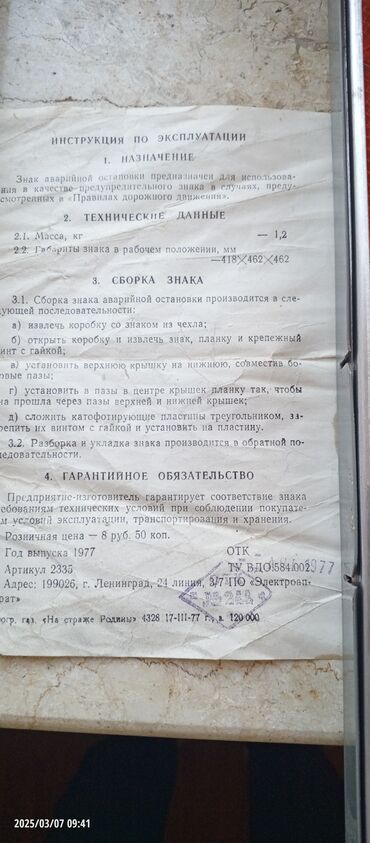 ИНСТРУКЦИЯ ПО ЭКСПЛУАТАЦИИ
1. НАЗНАЧЕНИЕ
Знак аварийной остановки предназначен для использова-
ния в качестве предупредительного знака в случаях, преду-
смотренных в «Правилах дорожного движения».
2. ТЕХНИЧЕСКИЕ ДАННЫЕ
2.1. Масса, кг — 1,2
2.2. Габариты знака в рабочем положении, мм
—418×462×462
3. СБОРКА ЗНАКА
3.1. Сборка знака аварийной остановки производится в сле-
дующей последовательности:
а) извлечь коробку со знаком из чехла;
б) открыть коробку и извлечь знак, планку и крепежный
винт с гайкой;
в) установить верхнюю крышку на нижнюю, совместив бо-
ковые пазы;
г) установить в пазы в центре крышек планку так, чтобы
на прошла через пазы верхней и нижней крышек;
д) сложить катофотирующие пластины треугольником, за-
репить их винтом с гайкой и установить на пластину.
3.2. Разборка и укладка знака производится в обратной по-
ледовательности.
4. ГАРАНТИЙНОЕ ОБЯЗАТЕЛЬСТВО
Предприятие-изготовитель гарантирует соответствие знака
ребованиям технических условий при соблюдении покупате-
м условий эксплуатации, транспортирования и хранения.
Розничная цена — 8 руб. 50 коп.
Год выпуска 1977 ОТК
1977
Артикул 2335 ТУ ВДО!584.002
Адрес: 199026, г. Ленинград, 24 линия, 3/7 ПО «Электроап-
рат»
огр. газ. «На страже Родины» 4328 17-III-77 г., з. 120 000
2025/03/07 09:41